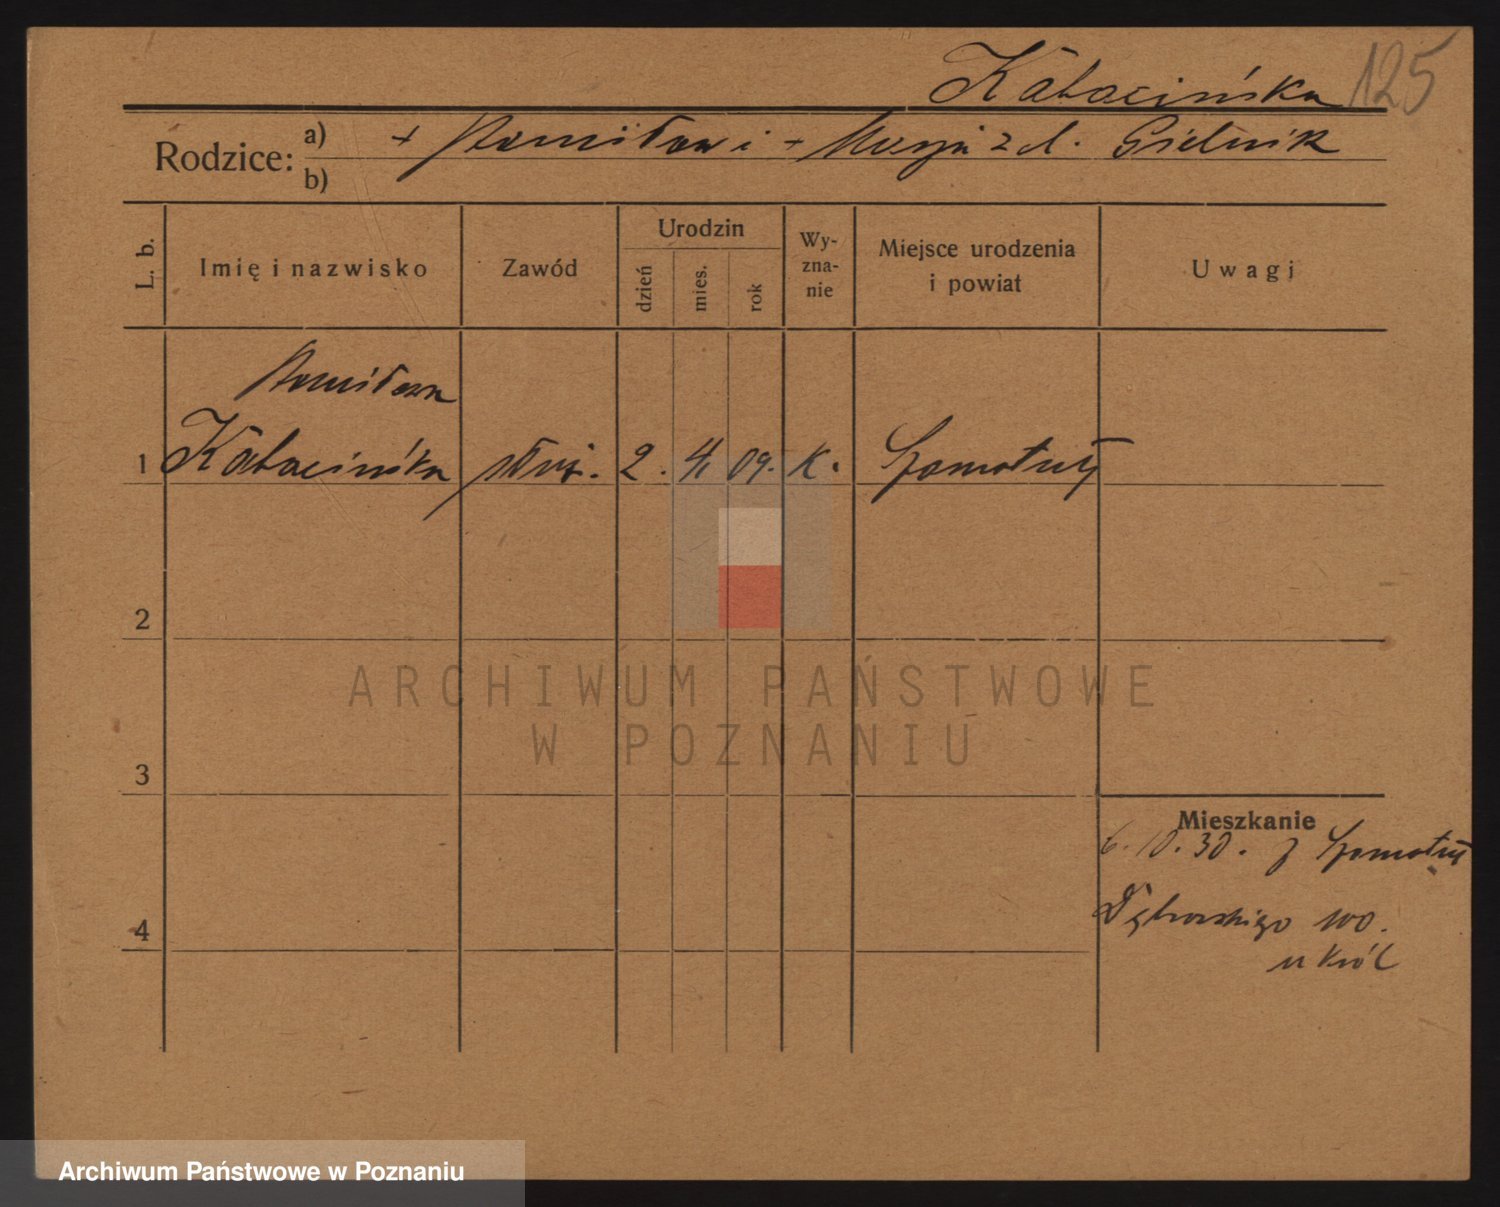 Kabacińska 125
Rodzice: a) + Stanisław i + Marja z d. Gielnik
b)
L. b. Imię i nazwisko Zawód Urodzin dzień mies. rok Wy-zna-nie Miejsce urodzenia i powiat Uwagi
Stanisława
1 Kabacińska służ. 2. 4. 09. K. Szamotuły
2
ARCHIWUM PAŃSTWOWE
W POZNANIU
3
Mieszkanie
6.10.30. z Szamotuły
4 Dąbrowskiego 100.
u Król
Archiwum Państwowe w Poznaniu